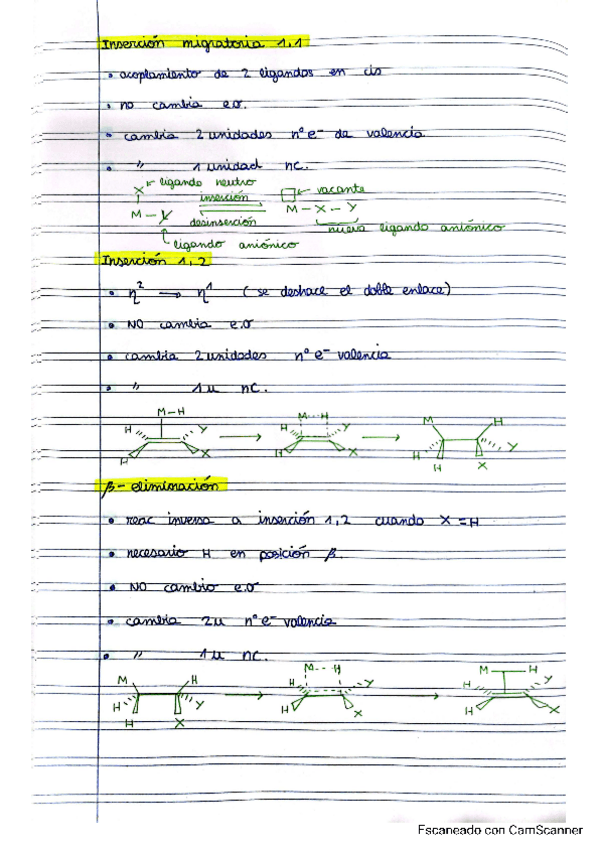 Inserción migratoria 1,1
• acoplamiento de 2 ligandos en cis
• no cambia e.o.
• cambia 2 unidades nº e- de valencia
• " 1 unidad nc.
X ligando neutro
M - Y
ligando aniónico
inserción
desinserción
vacante
M - X - Y
nuevo ligando aniónico
Inserción 1,2
• η2 → η1 (se deshace el doble enlace)
• NO cambia e.o
• cambia 2 unidades nº e- valencia
• " 1u nc.
M-H
H
Y
H
X
M---H
H
Y
H
X
M
H
H
Y
H
X
β-eliminación
• reac inversa a inserción 1,2 cuando X = H
• necesario H en posición β.
• NO cambio e.o
• cambia 2u nº e- valencia
• " 1u nc.
M
H
H
Y
H
X
M---H
H
Y
H
X
M
H
H
Y
H
X
Escaneado con CamScanner